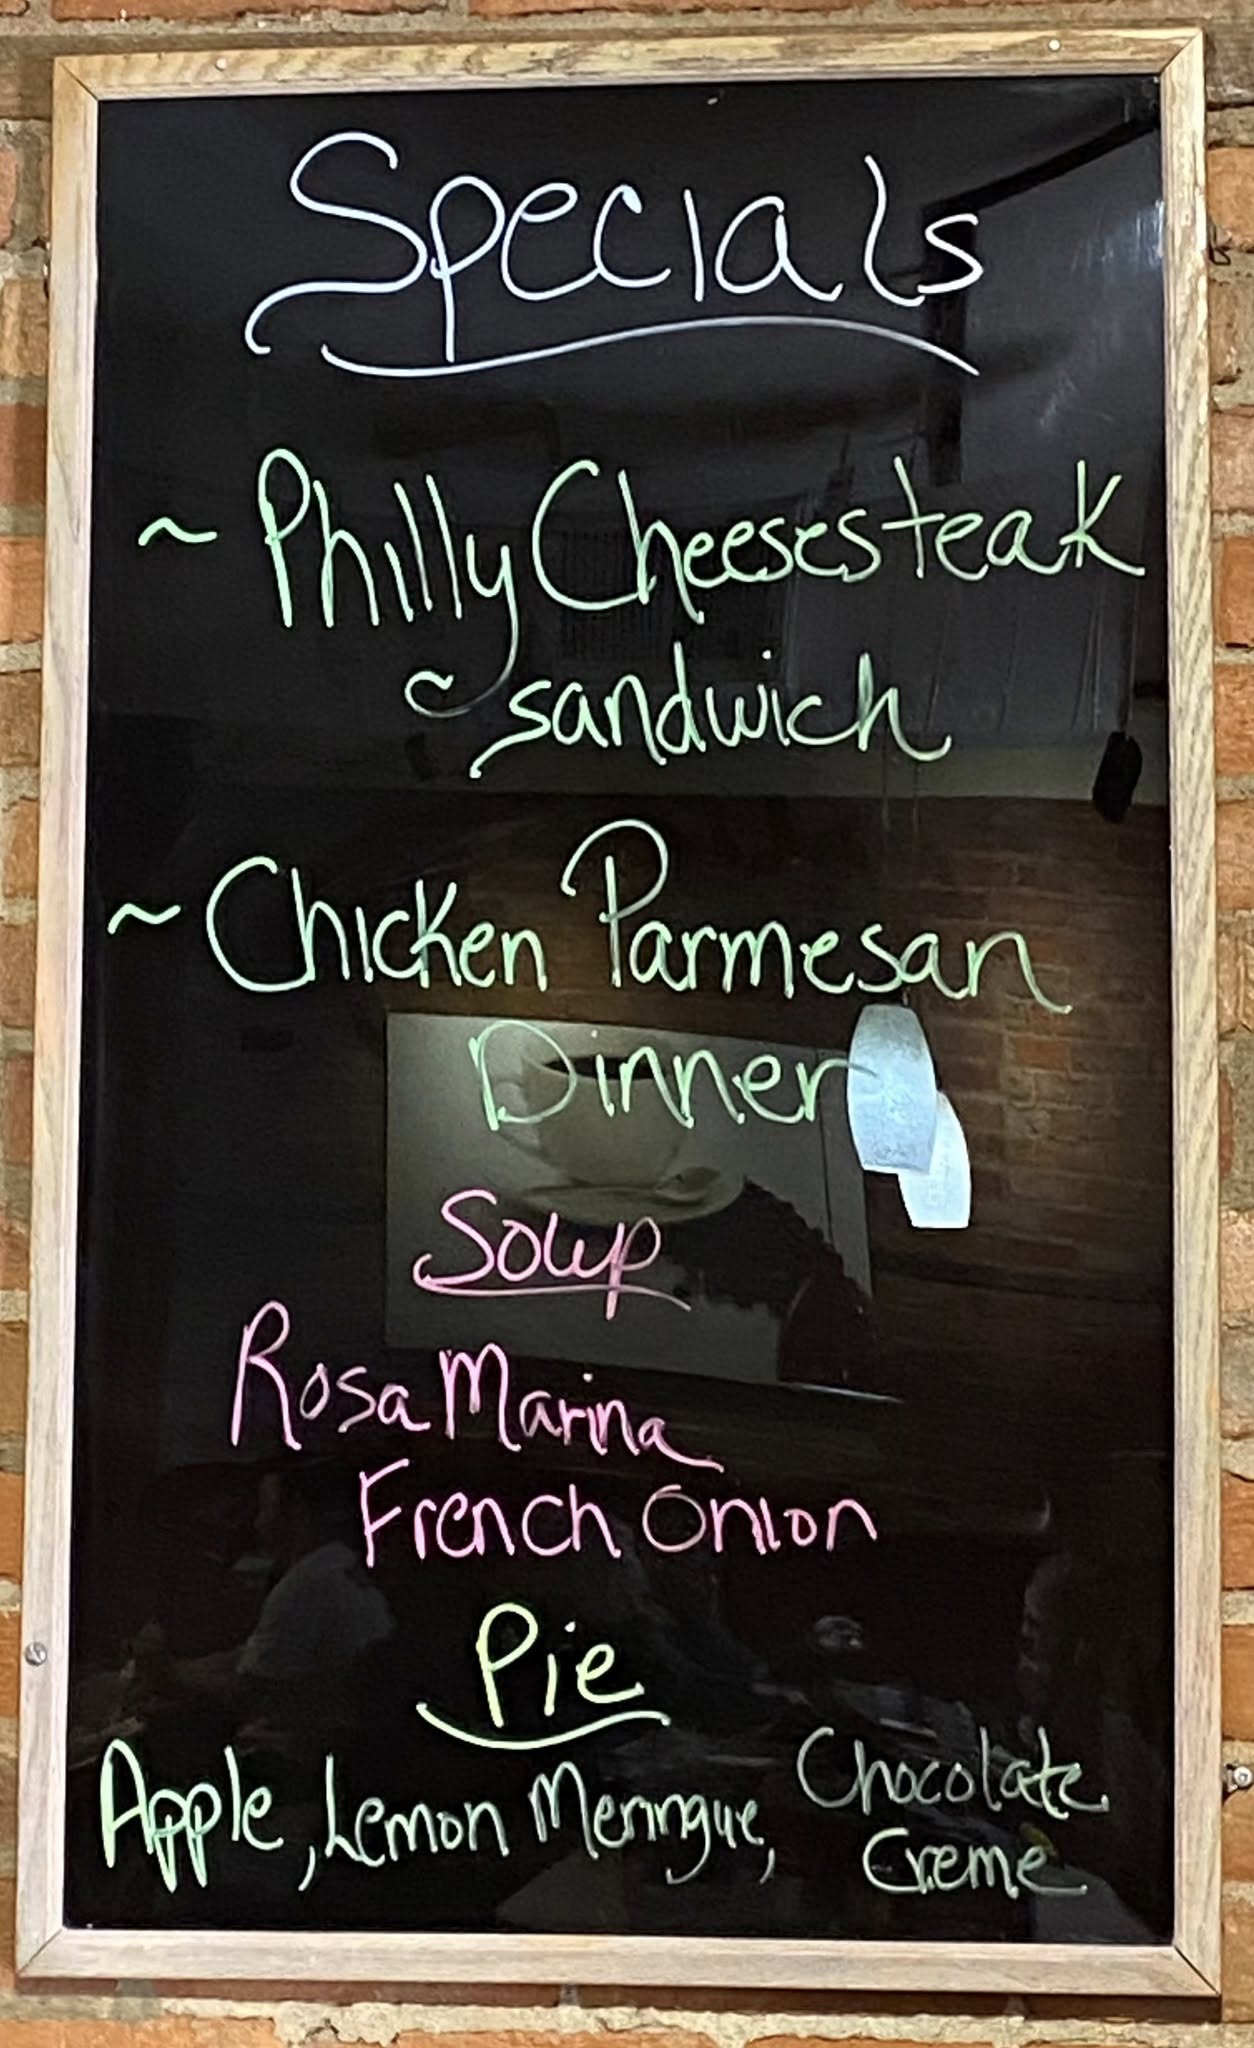 Specials
~ Philly Cheesesteak
~ sandwich
~ Chicken Parmesan
Dinner
Soup
Rosa Marina
French Onion
Pie
Apple, Lemon Meringue, Chocolate
Creme